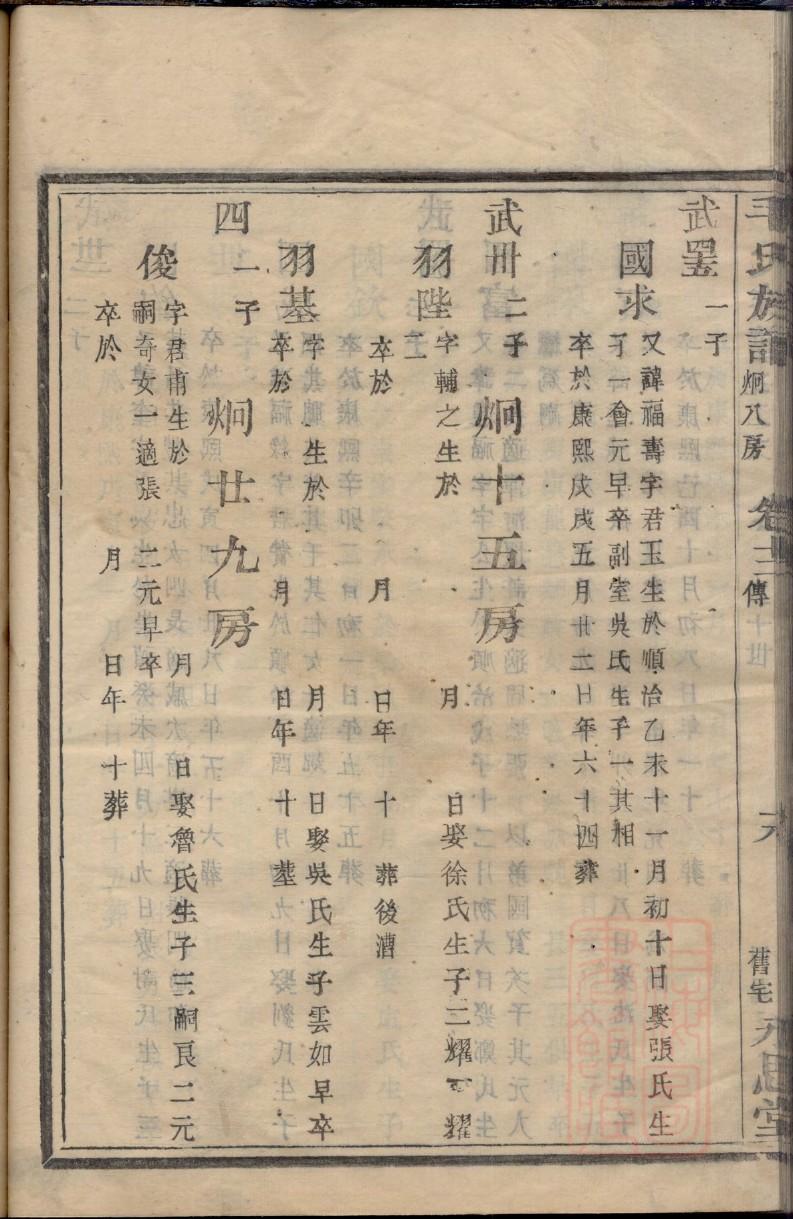 氏族譜 炯八房 卷 傳 十世 六 舊宅 思堂
武墨 一子
國求 又諱福壽字君玉生於順治乙未十一月初十日娶張氏生
子一會元早卒副室吳氏生子一其相
卒於康熙戊戌五月廿二日年六十四葬
武卅 二子 炯十五房
羽陛 字輔之生於 月 日娶徐氏生子三耀 耀
二
卒於 月 日年十 葬後漕
羽基 字 生於 月 日娶吳氏生子雲如早卒
卒於 月 日年 十 墓
四 一子 炯廿九房
俊 字君甫生於 月 日娶魯氏生子三嗣良二元
嗣奇女一適張 二元早卒
卒於 月 日年 十葬